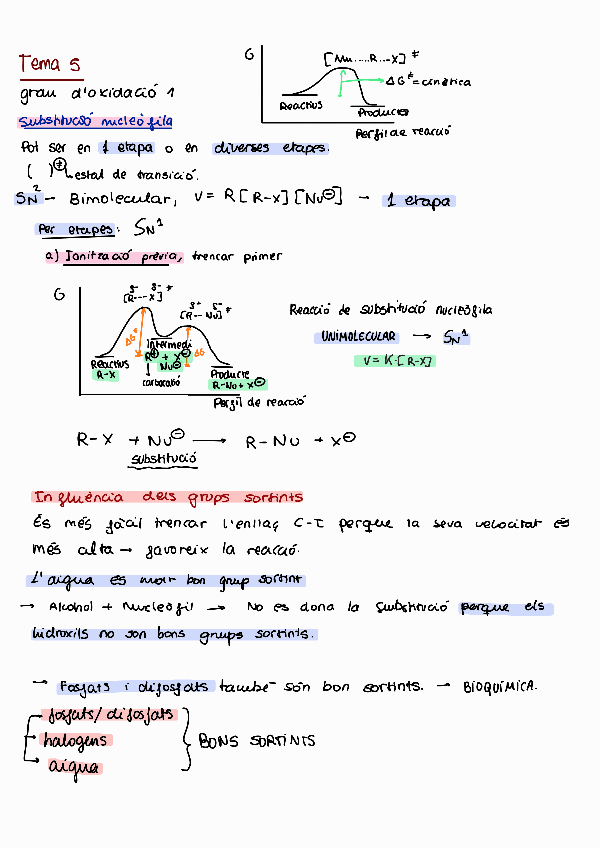 Tema 5
grau d'oxidació 1
Substitució nucleòfila
G
[Nu.....R...-X] ≠
ΔG≠ = cinètica
Reactius
Productes
Perfil de reacció
Pot ser en 1 etapa o en diverses etapes.
( )≠ estat de transició.
SN2 – Bimolecular, V = R[R-X][Nu⊖] – 1 etapa
Per etapes: SN1
a) Ionització prèvia, trencar primer
G
[R---X] ≠
[R--Nu] ≠
ΔG≠
Intermedi
R⊕ + X⊖
Nu⊖
ΔG
carbocatió
Reactius
R-X
Producte
R-Nu + X⊖
Perfil de reacció
Reacció de substitució nucleòfila
UNIMOLECULAR → SN1
V = K·[R-X]
R-X + Nu⊖ → R-Nu + X⊖
substitució
Influència dels grups sortints
És més fàcil trencar l'enllaç C-I perquè la seva velocitat és
més alta → favoreix la reacció.
L'aigua és molt bon grup sortint
→ Alcohol + Nucleòfil → No es dona la substitució perquè els
hidroxils no són bons grups sortints.
→ Fosfats i difosfats també són bon sortints. → BIOQUÍMICA.
fosfats/difosfats
halogens
aigua
BONS SORTINTS